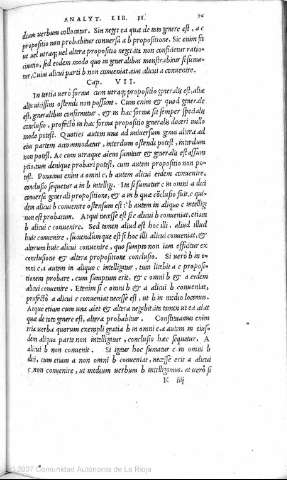 ANALYT. LIB. II.
dium verbum collomus. Sin negetea qua de toto genere est, a c
propositio non probabitur conversa a b propositione. Sic enim fit
ut vel utraque, vel altera propositio negetate non conficietur ratio-
cinatio, sed eodem modo
Cap. VII.
In tertia vero forma cum utraque propositio generalis est,
ostendi non possunt. Cum enim quod generale
est, generalibus confirmetur, in hac forma sit semper
conclusio, profecto in hac forma propositio generalis doceri nullo
modo potest. Quoties autem una ad universum genus altera ad
eius partem accommodatur, interdum ostendi potest, interdum
non potest. Ac cum utraque aiens sumitur & generalis est
partium denique probari potest, cum autem propositio non po-
test. Proximi enim a omni c, b autem alicui eidem convenire,
conclusio sequetur a in b intelligi. Si sumatur c in omni a dici
conversa generali propositione, & a in b qua conclusio fuit, c qui-
dem alicui b convenire ostensum est: b autem in aliquo c intelligi
non est probatum. Atqui necesse est si c alicui b convenit, etiam
b alicui c convenire. Sed tamen aliud est hoc illi, aliud illud
huic convenire, sumendumque est si hoc illi alicui conveniat, &
alterum huic alicui convenire, quo sumpto non iam efficitur ex
conclusione & altera propositione conclusio. Si vero b in o-
mni c a autem in aliquo c intelligitur, tum licebit a c proposi-
tionem probare, cum sumptum erit, & c omni b & a eidem
alicui convenire. Etenim si c omni b & a alicui b conveniat,
profecto a alicui c conveniat necesse est, ut b in medio locemus.
Atque etiam cum una aiet & altera negabit
quæ de toto genere est, altera probabitur. Constituamus enim
tria verba quorum exempli gratia b in omni c a autem in eius-
dem aliqua parte non intelligitur, conclusio hæc sequetur. A
alicui b non convenit. Si igitur hoc sumatur c in omni b
dici, cum etiam a non omni b conveniat, necesse erit a alicui
c non convenire, ut medium verbum b intelligamus. at vero si
N iij
© 2007 Comunidad Autónoma de La Rioja